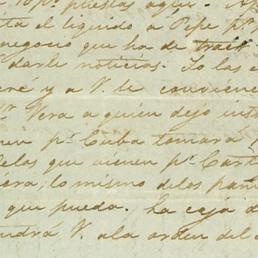 10 p.s puestas aqui.
ta el liquido a Pepe p.a
negocio que ha de traer
darle noticias. Yo las
ré y a V. le conviene
Vera a quien dejo inst
p.a Cuba tomara
elas que vienen p.a Cart
era, lo mismo delos pañ
que pueda. La caja d
ndra V. ala orden del